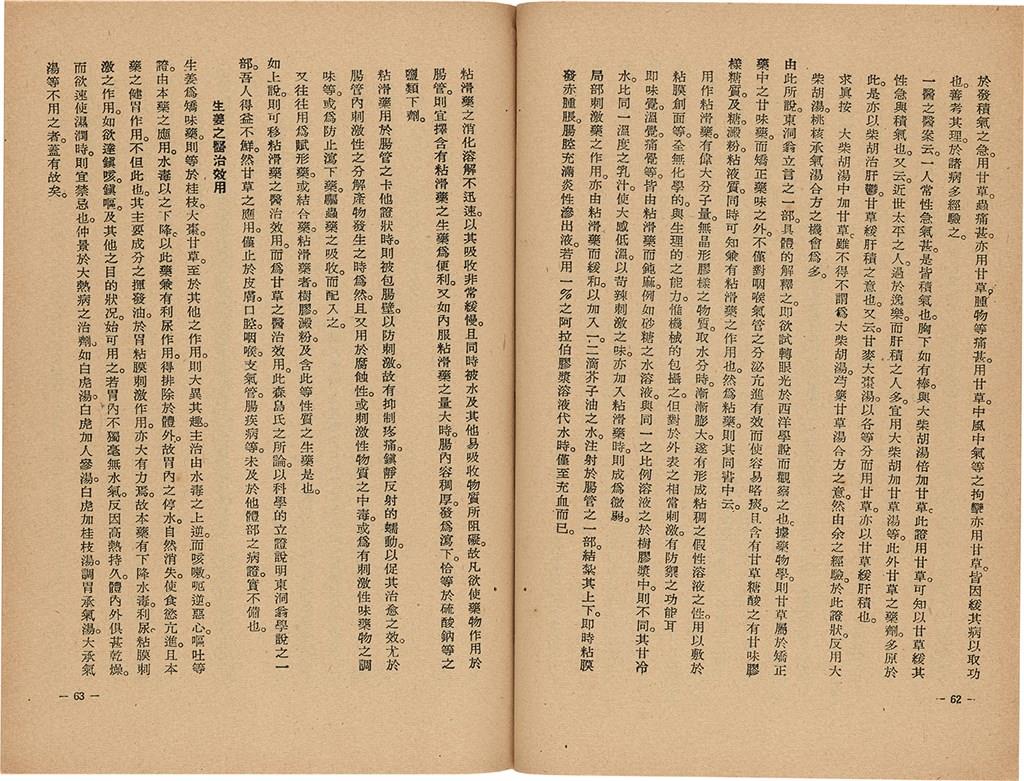 於發積氣之急用甘草蟲痛甚亦用甘草腫物等痛甚用甘草中風中氣等之拘攣亦用甘草皆因緩其病以取功
也善考其理於諸病多經驗之。
一醫之醫案云一人常性急氣甚是皆積氣也胸下如有棒與大柴胡湯倍加甘草此證用甘草可知以甘草緩其
性急與積氣也又云近世太平之人過於逸樂而肝積之人多宜用大柴胡加甘草湯等此外甘草之藥劑多原於
此是亦以柴胡治肝鬱甘草緩肝積之意也又云甘麥大棗湯以各等分而用甘草亦以甘草緩肝積也。
求眞按　大柴胡湯中加甘草雖不得不謂爲大柴胡湯芍藥甘草湯合方之意然由余之經驗於此證狀反用大
柴胡湯桃核承氣湯合方之機會爲多。
由此所說東洞翁立言之一部具體的解釋之即欲試轉眼光於西洋學說而觀察之也據藥物學則甘草屬於矯正
藥中之甘味藥而矯正藥味之外不僅對咽喉氣管之分泌亢進有效而使容易咯痰且含有甘草糖酸之有甘味膠
樣糖質及糖澱粉粘液質同時可知兼有粘滑藥之作用也然爲粘藥則其同書中云。
用作粘滑藥有偉大分子量無晶形膠樣之物質取水分時漸漸膨大遂有形成粘稠之假性溶液之性用以敷於
粘膜創面等全無化學的與生理的之能力惟機械的包攝之但對於外表之相當刺激有防禦之功能耳
即味覺溫覺痛覺等皆由粘滑藥而鈍麻例如砂糖之水溶液與同一之比例溶液之於樹膠漿中則不同其甘冷
水比同一溫度之乳汁使大感低溫以苛辣刺激之味亦加入粘滑藥時則成爲微弱。
局部刺激藥之作用亦由粘滑藥而緩和以加入一二滴芥子油之水注射於腸管之一部結紮其上下即時粘膜
發赤腫脹腸腔充滿炎性滲出液若用一％之阿拉伯膠漿溶液代水時僅至充血而已。
— 62 —
粘滑藥之消化溶解不迅速以其吸收非常緩慢且同時被水及其他易吸收物質所阻礙故凡欲使藥物作用於
腸管則宜擇含有粘滑藥之生藥爲便利又如內服粘滑藥之量大時腸內容稠厚發爲瀉下恰等於硫酸鈉等之
鹽類下劑。
粘滑藥用於腸管之卡他證狀時則被包腸壁以防刺激故有抑制疼痛鎭靜反射的蠕動以促其治愈之效尤於
腸管內刺激性之分解產物發生之時爲然且又用於腐蝕性或刺激性物質之中毒或爲有刺激性味藥物之調
味等或爲防止瀉下藥驅蟲藥之吸收而配入之。
又往往用爲賦形藥或結合藥粘滑藥者樹膠澱粉及含此等性質之生藥是也。
如上說則可移粘滑藥之醫治效用而爲甘草之醫治效用此森島氏之所論以科學的立證說明東洞翁學說之一
部吾人得益不鮮然甘草之應用僅止於皮膚口腔咽喉支氣管腸疾病等未及於他體部之病證實不備也。
生姜之醫治效用
生姜爲矯味藥則等於桂枝大棗甘草至於其他之作用則大異其趣主治由水毒之上逆而咳嗽呃逆惡心嘔吐等
證由本藥之應用水毒以之下降以此藥兼有利尿作用得排除於體外故胃內之停水自然消失使食慾亢進且本
藥之健胃作用不但此也其主要成分之揮發油於胃粘膜刺激作用亦大有力焉故本藥有下降水毒利尿粘膜刺
激之作用如欲達鎭咳鎭嘔及其他之目的狀況始可用之若胃內不獨毫無水氣反因高熱持久體內外俱甚乾燥。
而欲速使濕潤時則宜禁忌也仲景於大熱病之治劑如白虎湯白虎加人參湯白虎加桂枝湯調胃承氣湯大承氣
湯等不用之者蓋有故矣。
— 63 —